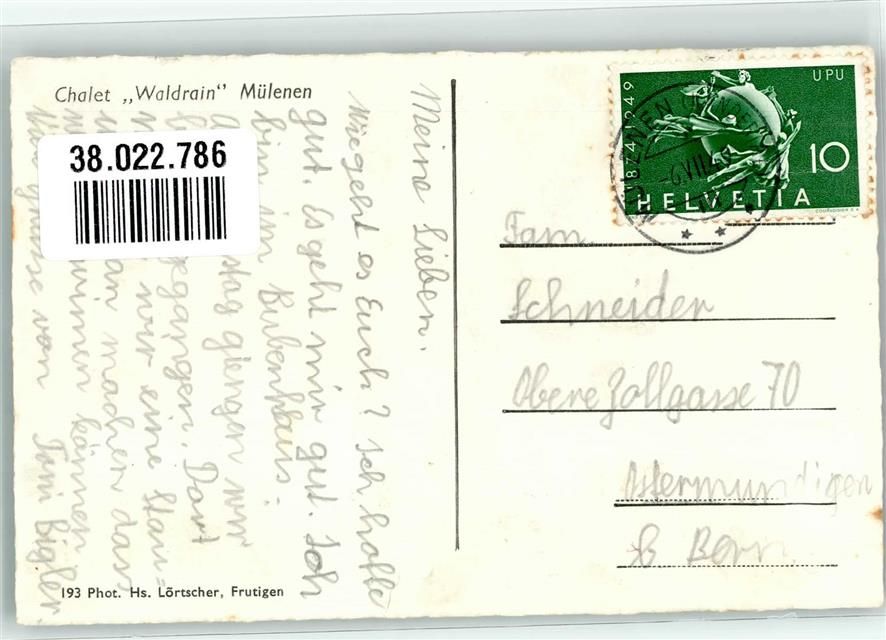 Chalet „Waldrain" Mülenen
38.022.786
Meine Lieben.
Wie geht es Euch? Ich hoffe
gut. Es geht mir gut. Ich
bin im Bubenhaus.
stag giengen wir
gegangen. Dort
wir eine Stau=
an machen dass
wimmen können
grüsse von Toni Bigler
193 Phot. Hs. Lörtscher, Frutigen
1874 1949
UPU
10
HELVETIA
COURVOISIER S.A.
MÜLENEN
Fam.
Schneider
Obere Zollgasse 70
Ostermundigen
b. Bern